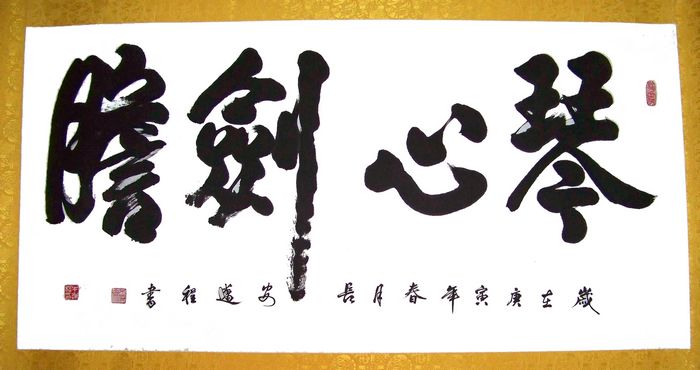 琴心劍膽
歲在庚寅年春月長安遂程書